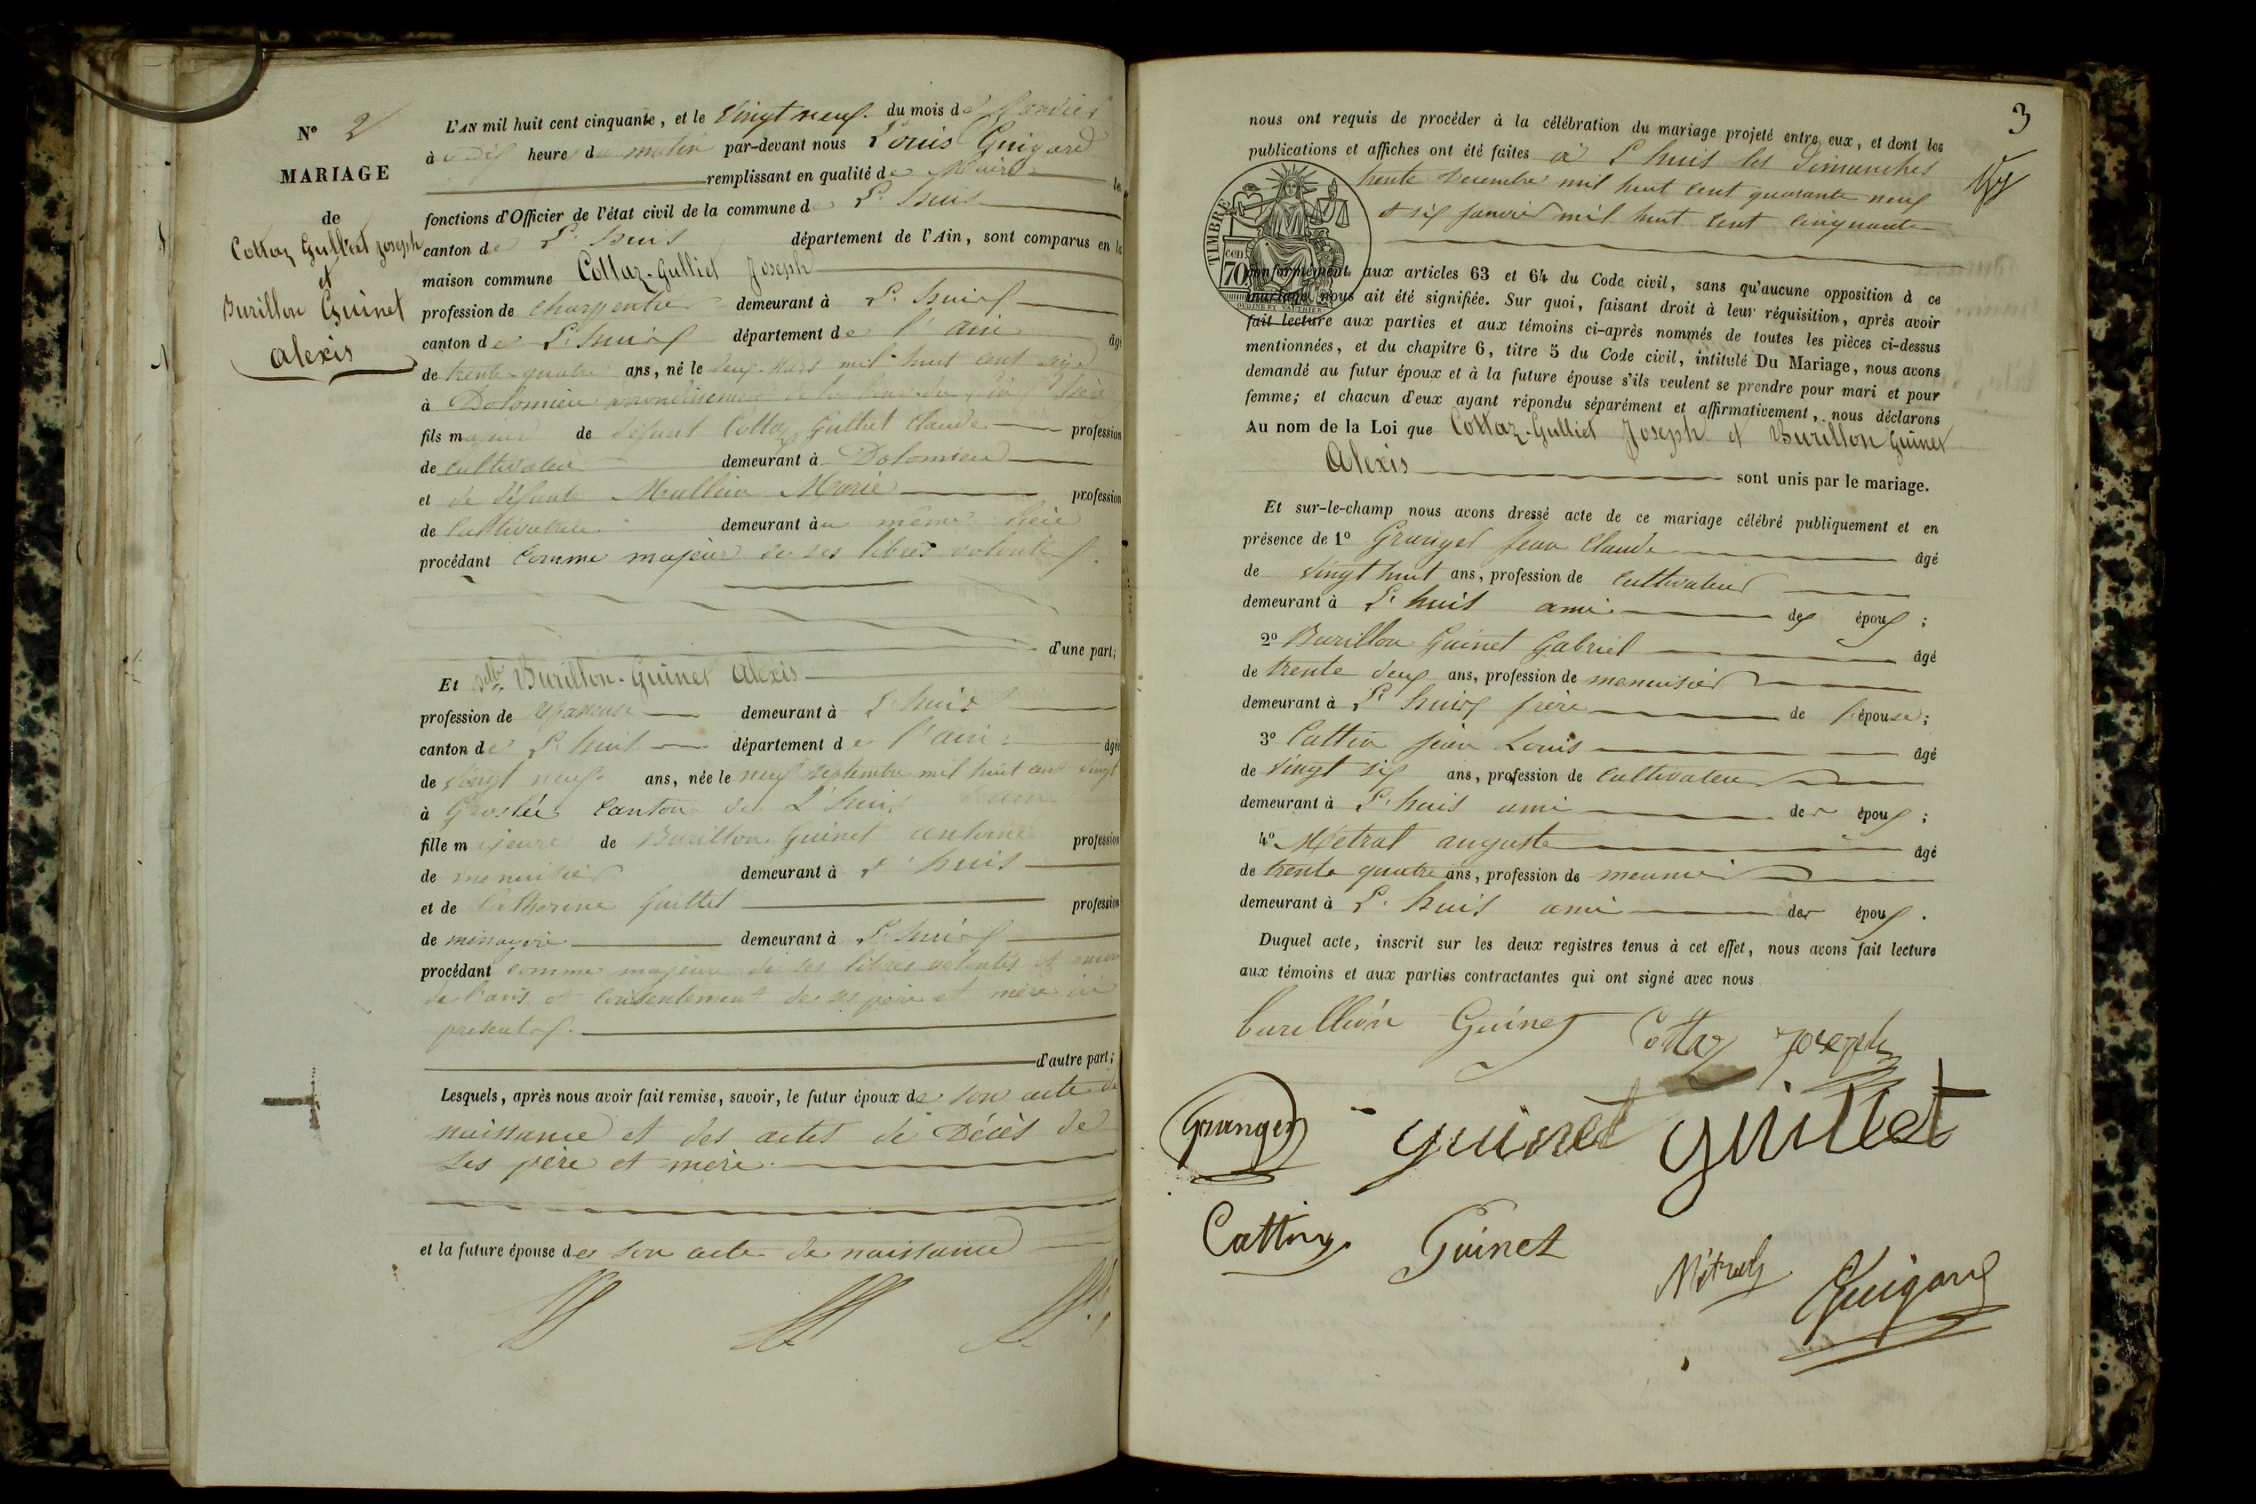 N° 2
MARIAGE
de
Cottaz Gulliet Joseph
et
Burillon Guinet
Alexis
L'AN mil huit cent cinquante, et le vingt neuf du mois de Janvier
à dix heures du matin par-devant nous Louis Guigard
remplissant en qualité de Maire les
fonctions d'Officier de l'état civil de la commune de L'huis
canton de L'huis département de l'Ain, sont comparus en la
maison commune Cottaz-Gulliet Joseph
profession de charpentier demeurant à L'huis
canton de L'huis département de l'ain âgé
de trente-quatre ans, né le deux Mars mil huit cent seize
à Dolomieu arrondissement de la tour du pin Isère
fils majeur de défunt Cottaz Gulliet Claude profession
de cultivateur demeurant à Dolomieu
et de défunte Mallein Marie profession
de cultivatrice demeurant au même lieu
procédant comme majeur de ses libres volontés
d'une part;
Et dlle Burillon-Guinet Alexis
profession de demeurant à L'huis
canton de L'huis département de l'ain âgée
de vingt neuf ans, née le neuf septembre mil huit cent vingt
à Groslée canton de L'huis ain
fille majeure de Burillon Guinet antoine profession
de menuisier demeurant à L'huis
et de Catherine Guillet profession
de ménagère demeurant à L'huis
procédant comme majeure de ses libres volontés et
de l'avis et consentement de ses père et mère ici
présents
d'autre part;
Lesquels, après nous avoir fait remise, savoir, le futur époux de son acte de
naissance et des actes de Décès de
ses père et mère
et la future épouse de son acte de naissance
3
nous ont requis de procéder à la célébration du mariage projeté entre eux, et dont les
publications et affiches ont été faites à L'huis les Dimanches
trente decembre mil huit cent quarante neuf
et six janvier mil huit cent cinquante
TIMBRE
70
conformément aux articles 63 et 64 du Code civil, sans qu'aucune opposition à ce
mariage nous ait été signifiée. Sur quoi, faisant droit à leur réquisition, après avoir
fait lecture aux parties et aux témoins ci-après nommés de toutes les pièces ci-dessus
mentionnées, et du chapitre 6, titre 5 du Code civil, intitulé Du Mariage, nous avons
demandé au futur époux et à la future épouse s'ils veulent se prendre pour mari et pour
femme; et chacun d'eux ayant répondu séparément et affirmativement, nous déclarons
Au nom de la Loi que Cottaz-Gulliet Joseph et Burillon Guinet
Alexis sont unis par le mariage.
Et sur-le-champ nous avons dressé acte de ce mariage célébré publiquement et en
présence de 1° Granger Jean Claude âgé
de vingt huit ans, profession de cultivateur
demeurant à L'huis ami des époux;
2° Burillon Guinet Gabriel âgé
de trente deux ans, profession de menuisier
demeurant à L'huis frère de l'épouse;
3° Cattin jean Louis âgé
de vingt six ans, profession de cultivateur
demeurant à L'huis ami des époux;
4° Metral auguste âgé
de trente quatre ans, profession de meunier
demeurant à L'huis ami des époux.
Duquel acte, inscrit sur les deux registres tenus à cet effet, nous avons fait lecture
aux témoins et aux parties contractantes qui ont signé avec nous
burillion Guinet Cottaz Joseph
Granger guinet guillet
Cattin Guinet
Métral Guigard